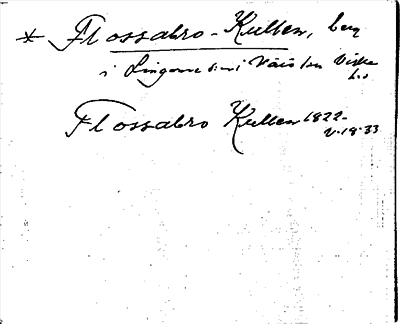 * Flossabro-Kullen, berg
i Lingome sn i Väis Viske
hd
Flossabro Kullen 1822-
V-18-33